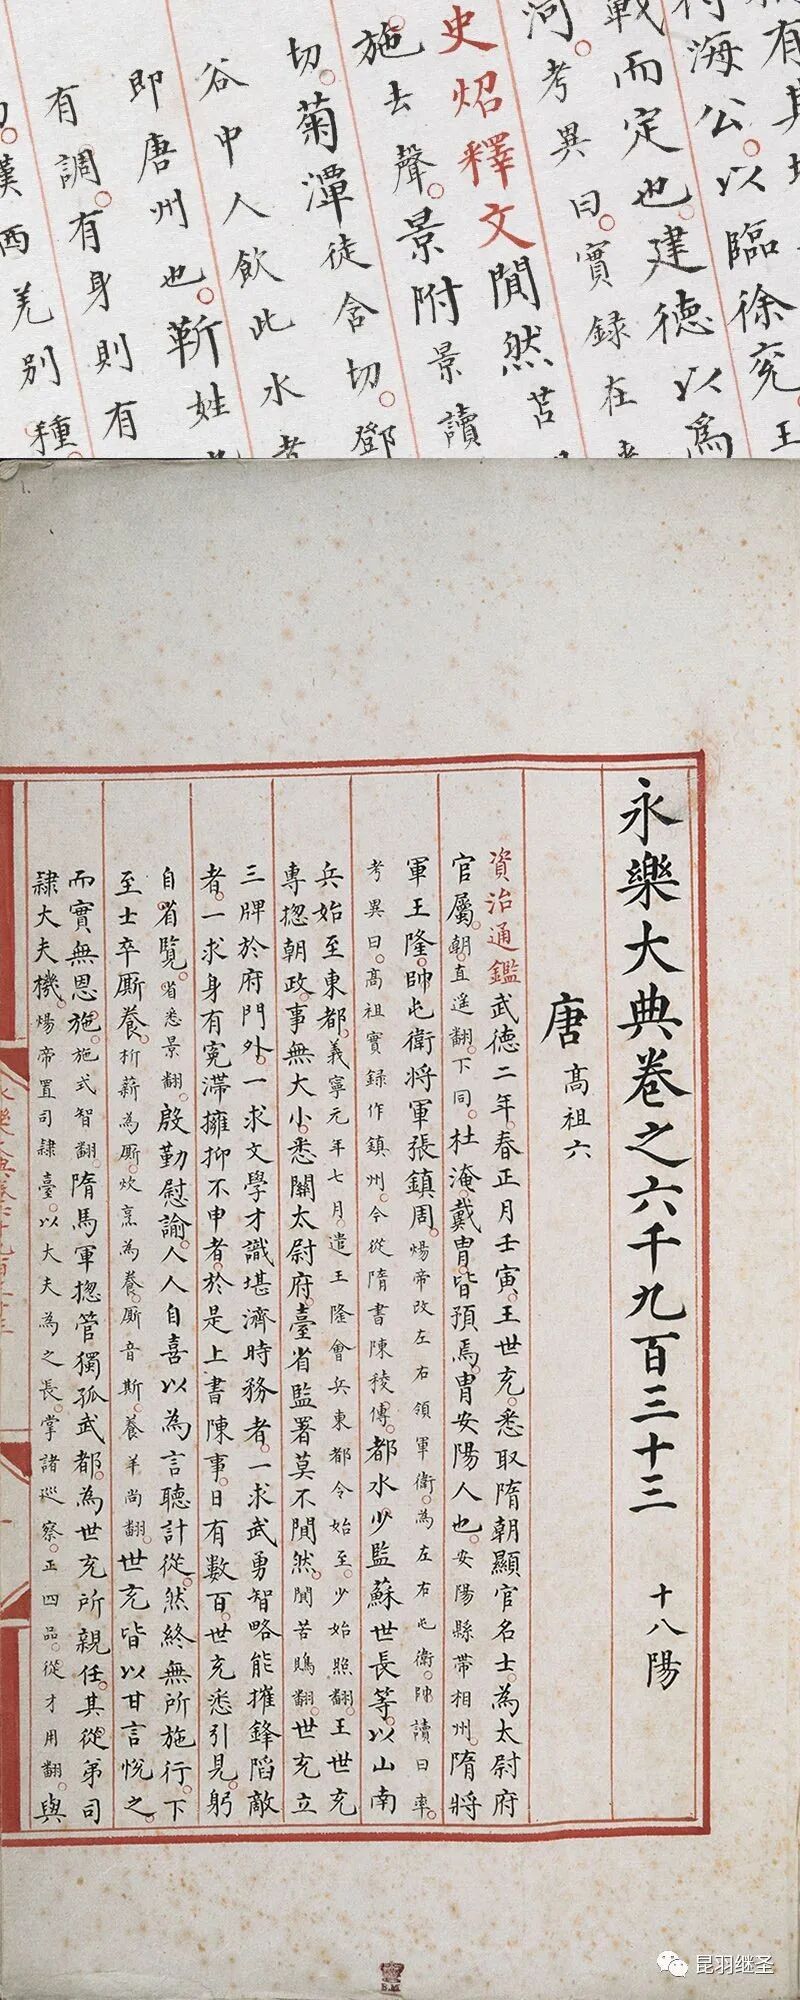 有其
海公。以臨徐兖。王
戰而定也。建德以為
河。考異曰。實録在
史炤釋文閴然苦
施去聲。景附景讀
切。菊潭徒含切。鄧
谷中人飲此水者
即唐州也。靳姓
有調。有身則有
漢西羌別種。
永樂大典卷之六千九百三十三 十八陽
唐 高祖六
資治通鑑武德二年。春正月壬寅。王世充。悉取隋朝顯官名士。為太尉府
官屬。朝直遥翻。下同。杜淹。戴胄。皆預焉。胄安陽人也。安陽縣帶相州。隋將
軍王隆。帥屯衛將軍張鎮周。煬帝改左右領軍衛。為左右屯衛。帥讀曰率。
考異曰。高祖實録作鎮州。今從隋書陳稜傳。都水少監蘇世長等。以山南
兵始至東都。義寧元年七月。遣王隆會兵東都今始至。少始照翻。王世充
專揔朝政。事無大小。悉關太尉府。臺省監署莫不閴然。閴苦鵙翻。世充立
三牌於府門外。一求文學才識堪濟時務者。一求武勇智略能摧鋒陷敵
者。一求身有冤滯擁抑不申者。於是上書陳事。日有數百。世充悉引見。躬
自省覽。省悉景翻。殷勤慰諭。人人自喜以為言聽計從。然終無所施行。下
至士卒厮養。析薪為厮。炊烹為養。厮音斯。養羊尚翻。世充皆以甘言悅之。
而實無恩施。施式智翻。隋馬軍揔管獨孤武都。為世充所親任。其從弟司
隸大夫機。煬帝置司隸臺。以大夫為之長。掌諸巡察。正四品。從才用翻。與
昆羽继圣